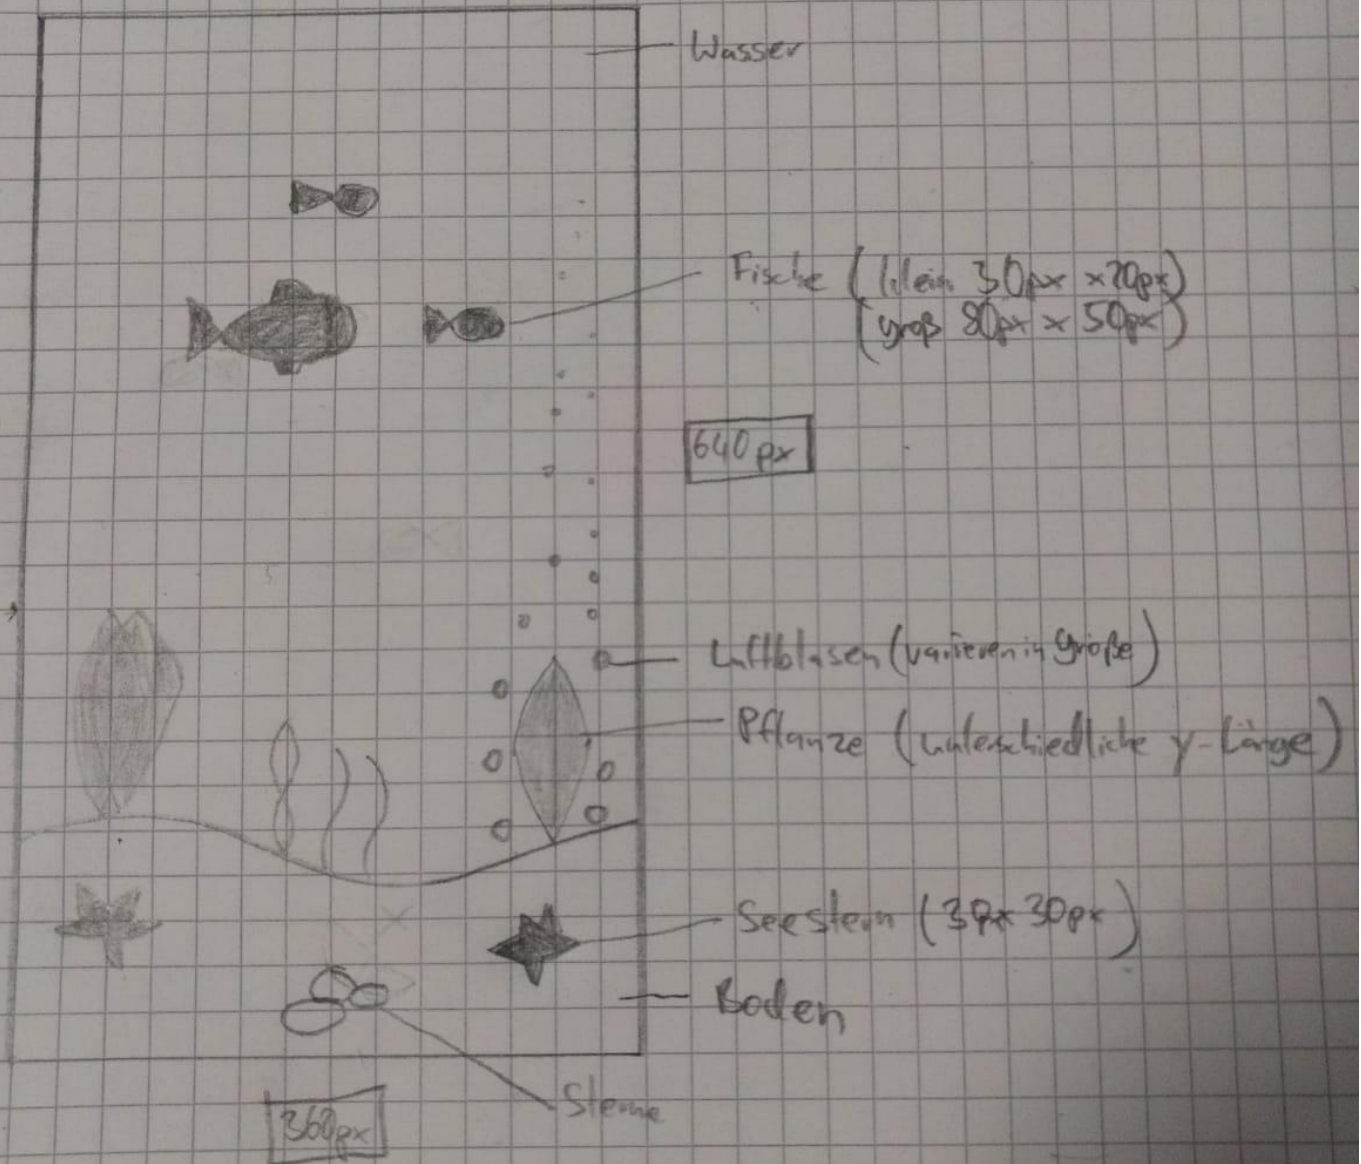 Wasser
Fische (klein 30px x 20px)
(groß 80px x 50px)
640px
Luftblasen (variieren in Größe)
Pflanze (unterschiedliche y-Länge)
Seestern (30x 30px)
Boden
Steine
360px